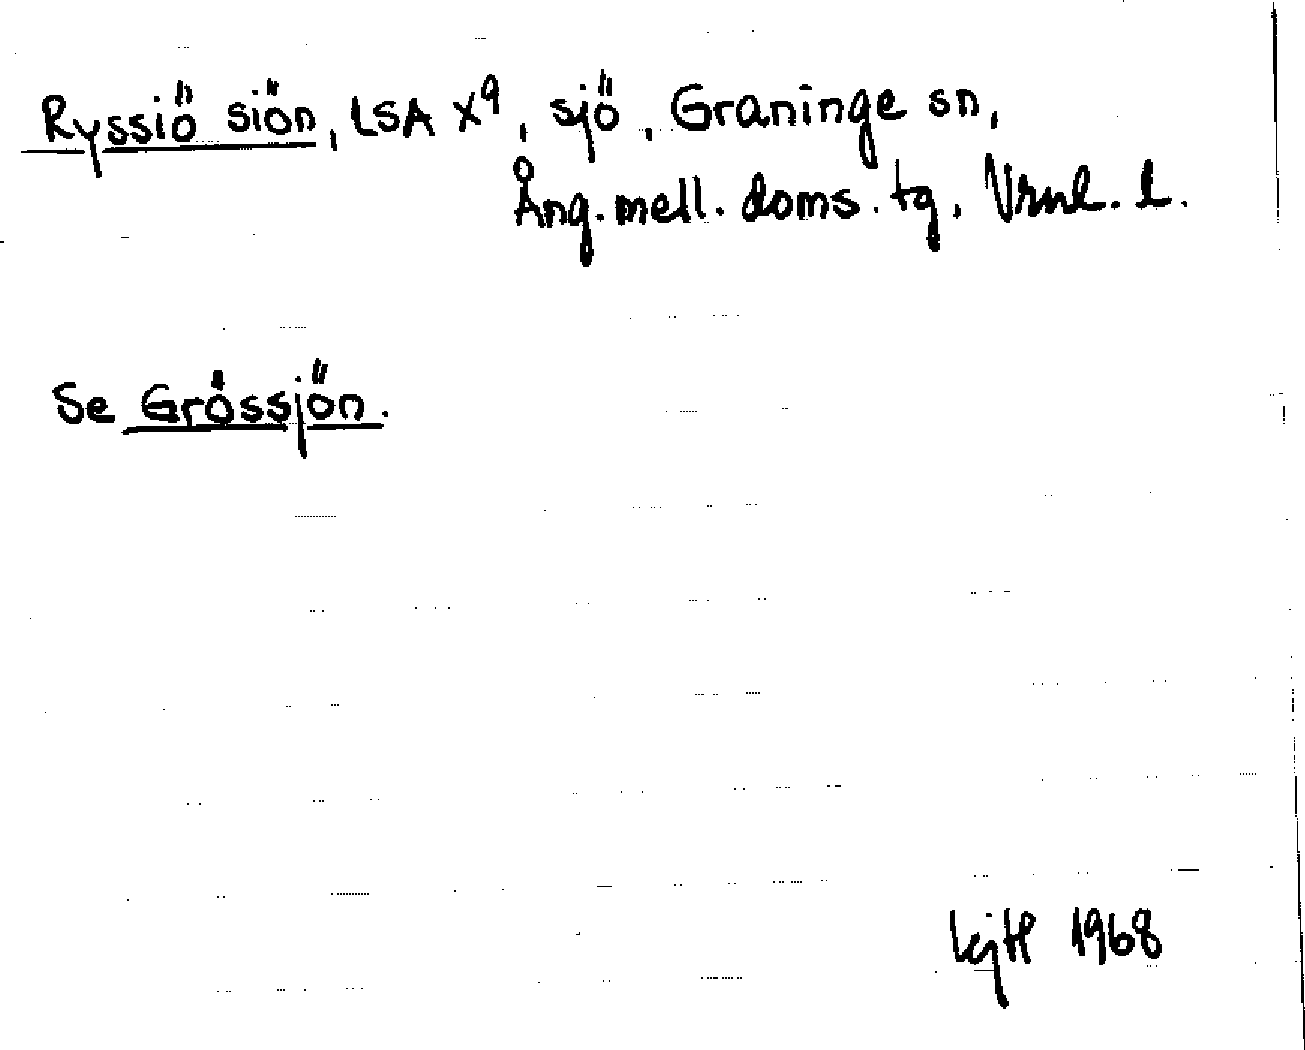 Ryssiö siön, LSA X9, sjö, Graninge sn,
Ång. mell. doms. tg, Vrnl. l.
Se Gråssjön.
1968